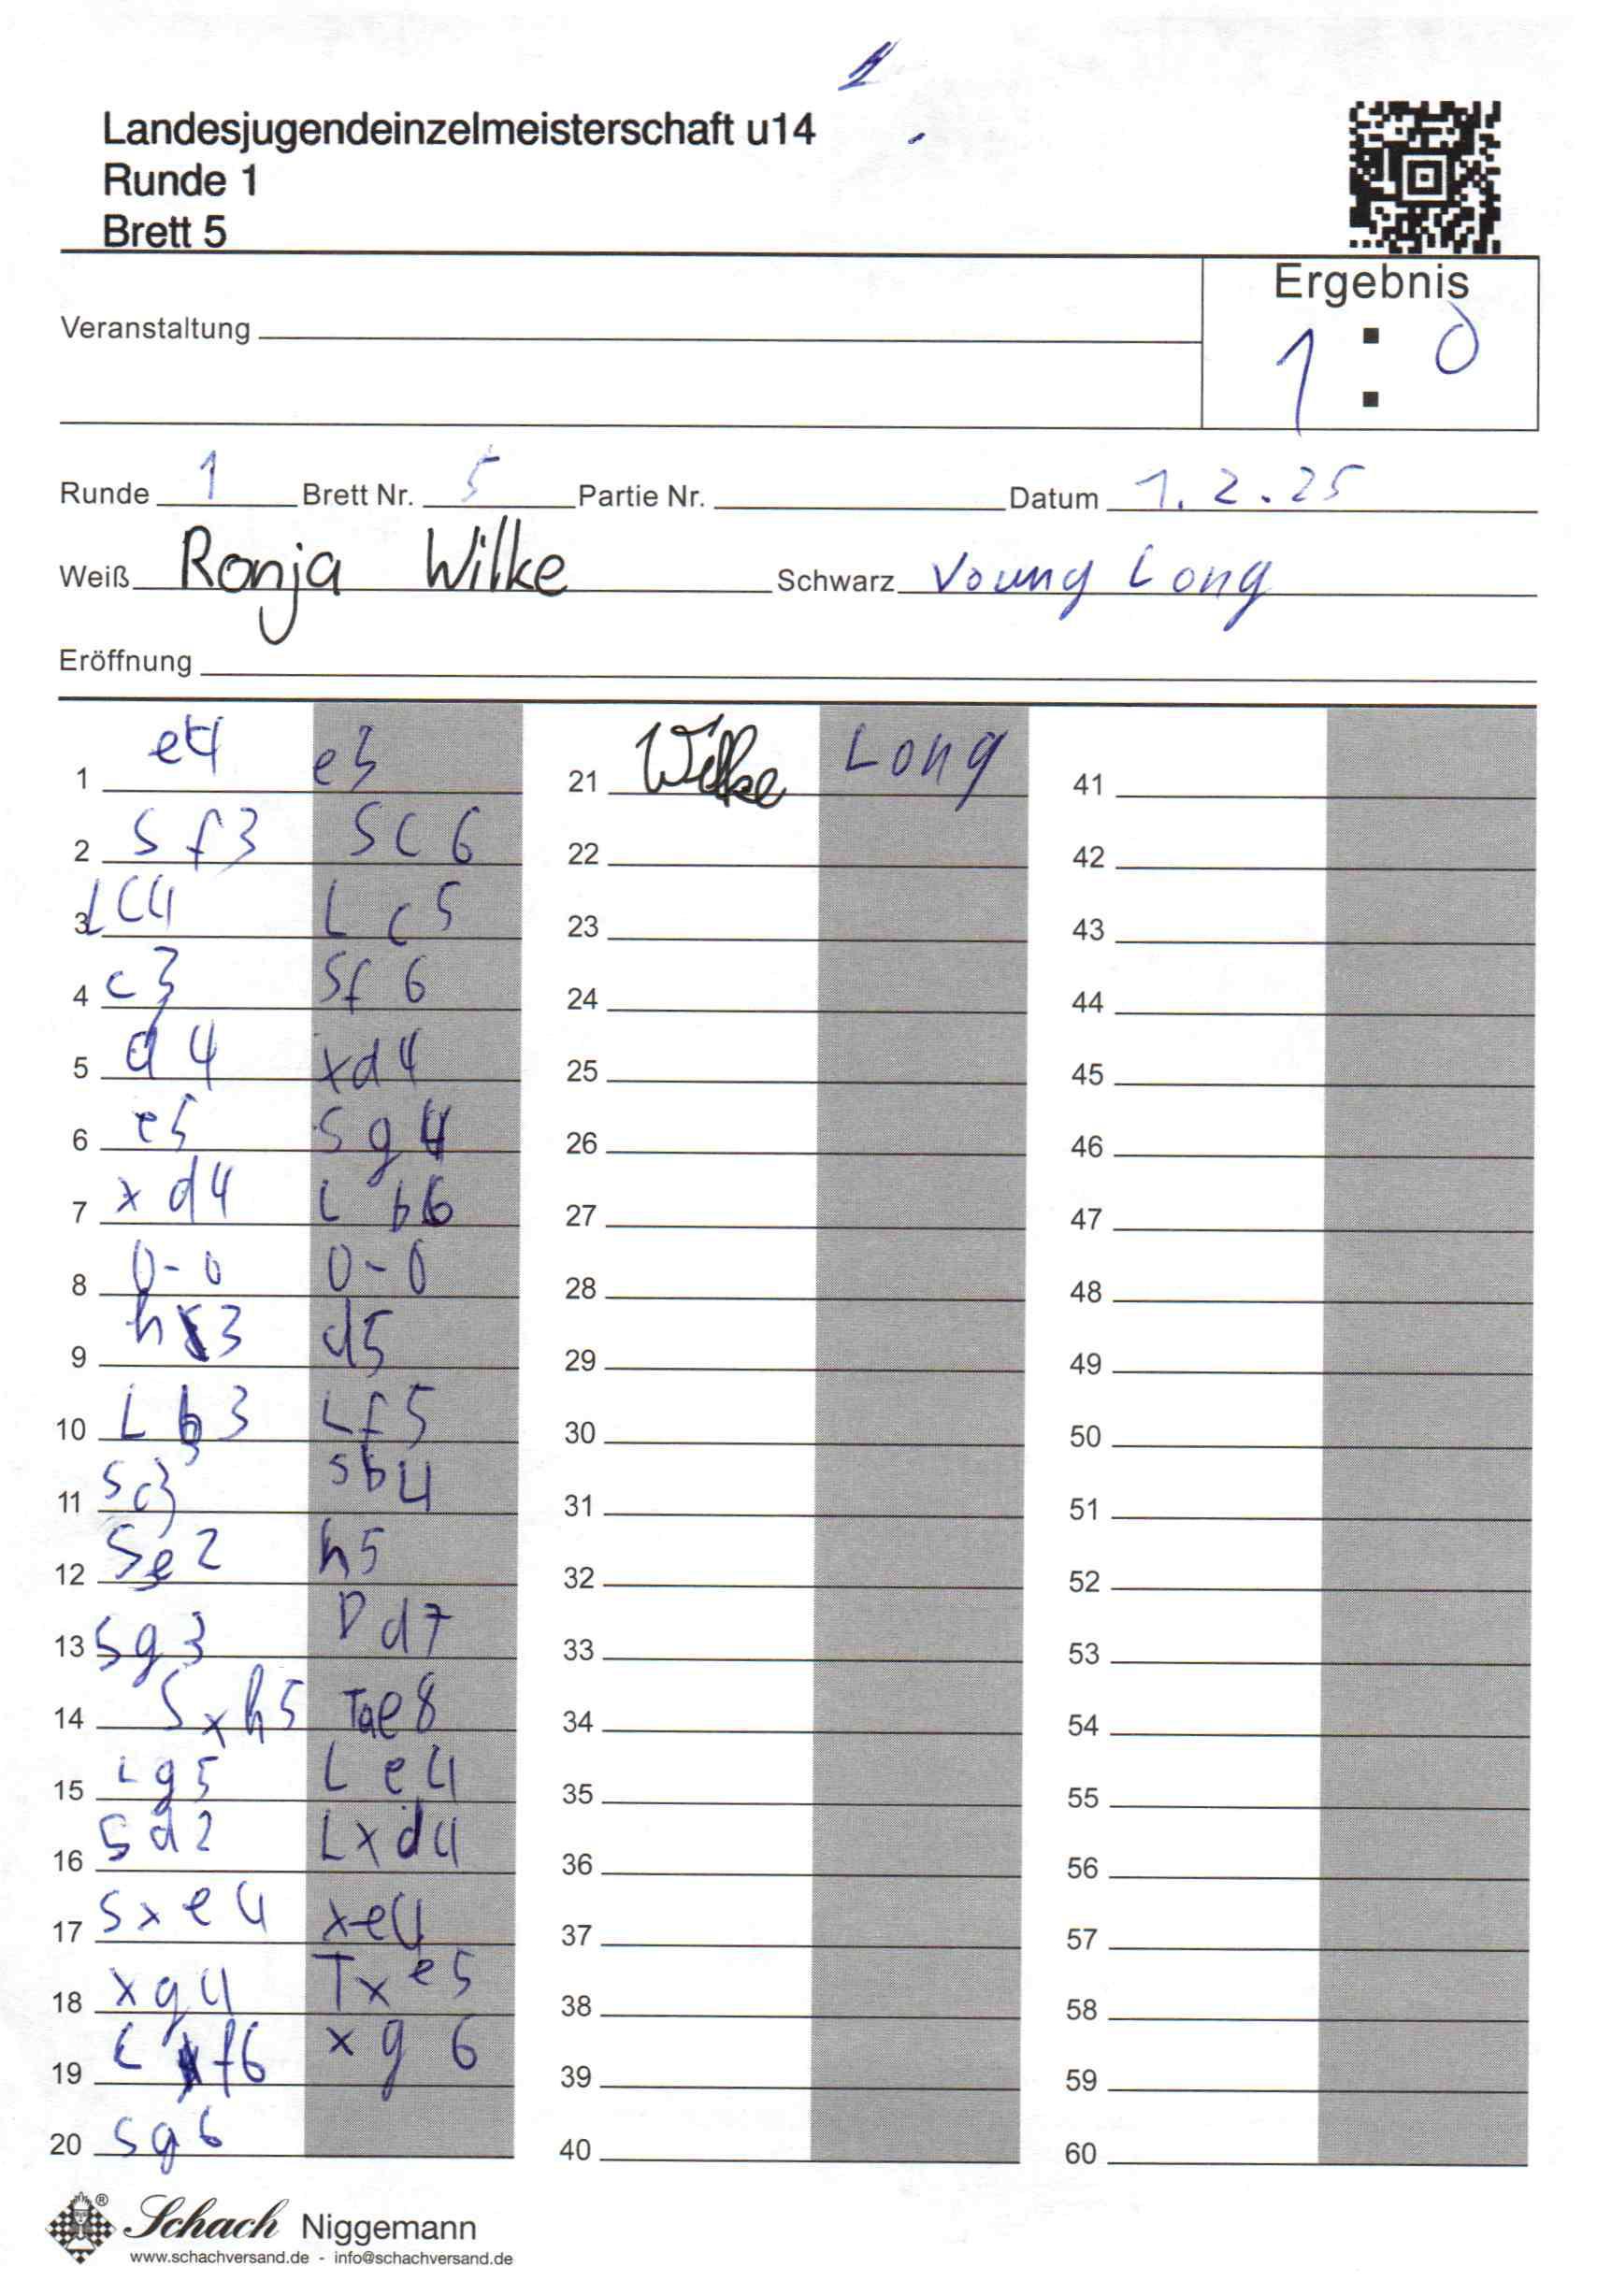 1
Landesjugendeinzelmeisterschaft u14
Runde 1
Brett 5
Ergebnis
1 : 0
Veranstaltung
Runde 1 Brett Nr. 5 Partie Nr. Datum 1.2.25
Weiß Ronja Wilke Schwarz Young Long
Eröffnung
1 e4 e5
2 Sf3 Sc6
3 Lc4 Lc5
4 c3 Sf6
5 d4 xd4
6 e5 Sg4
7 xd4 Lb6
8 0-0 0-0
9 h3 d5
10 Lb3 Lf5
11 Sc3 Sb4
12 Se2 h5
13 Sg3 Dd7
14 Sxh5 Tae8
15 Lg5 Le4
16 Sd2 Lxd4
17 Sxe4 xe4
18 xg4 Txe5
19 Lf6 xg6
20 Sg6
21 Wilke Long
22
23
24
25
26
27
28
29
30
31
32
33
34
35
36
37
38
39
40
41
42
43
44
45
46
47
48
49
50
51
52
53
54
55
56
57
58
59
60
® Schach Niggemann
www.schachversand.de - info@schachversand.de